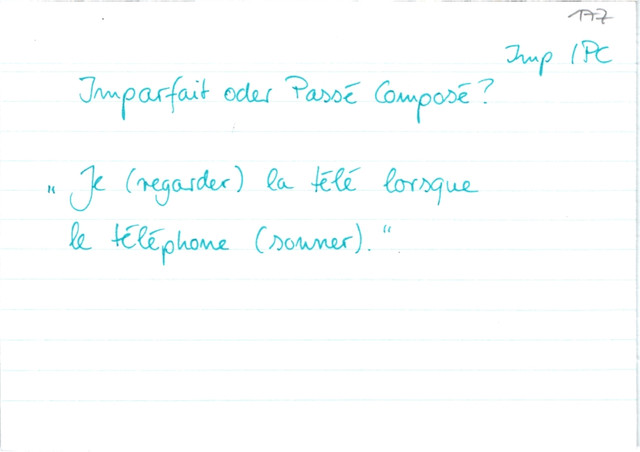 177
Imp / PC
Imparfait oder Passé Composé?
„ Je (regarder) la télé lorsque
le téléphone (sonner). “